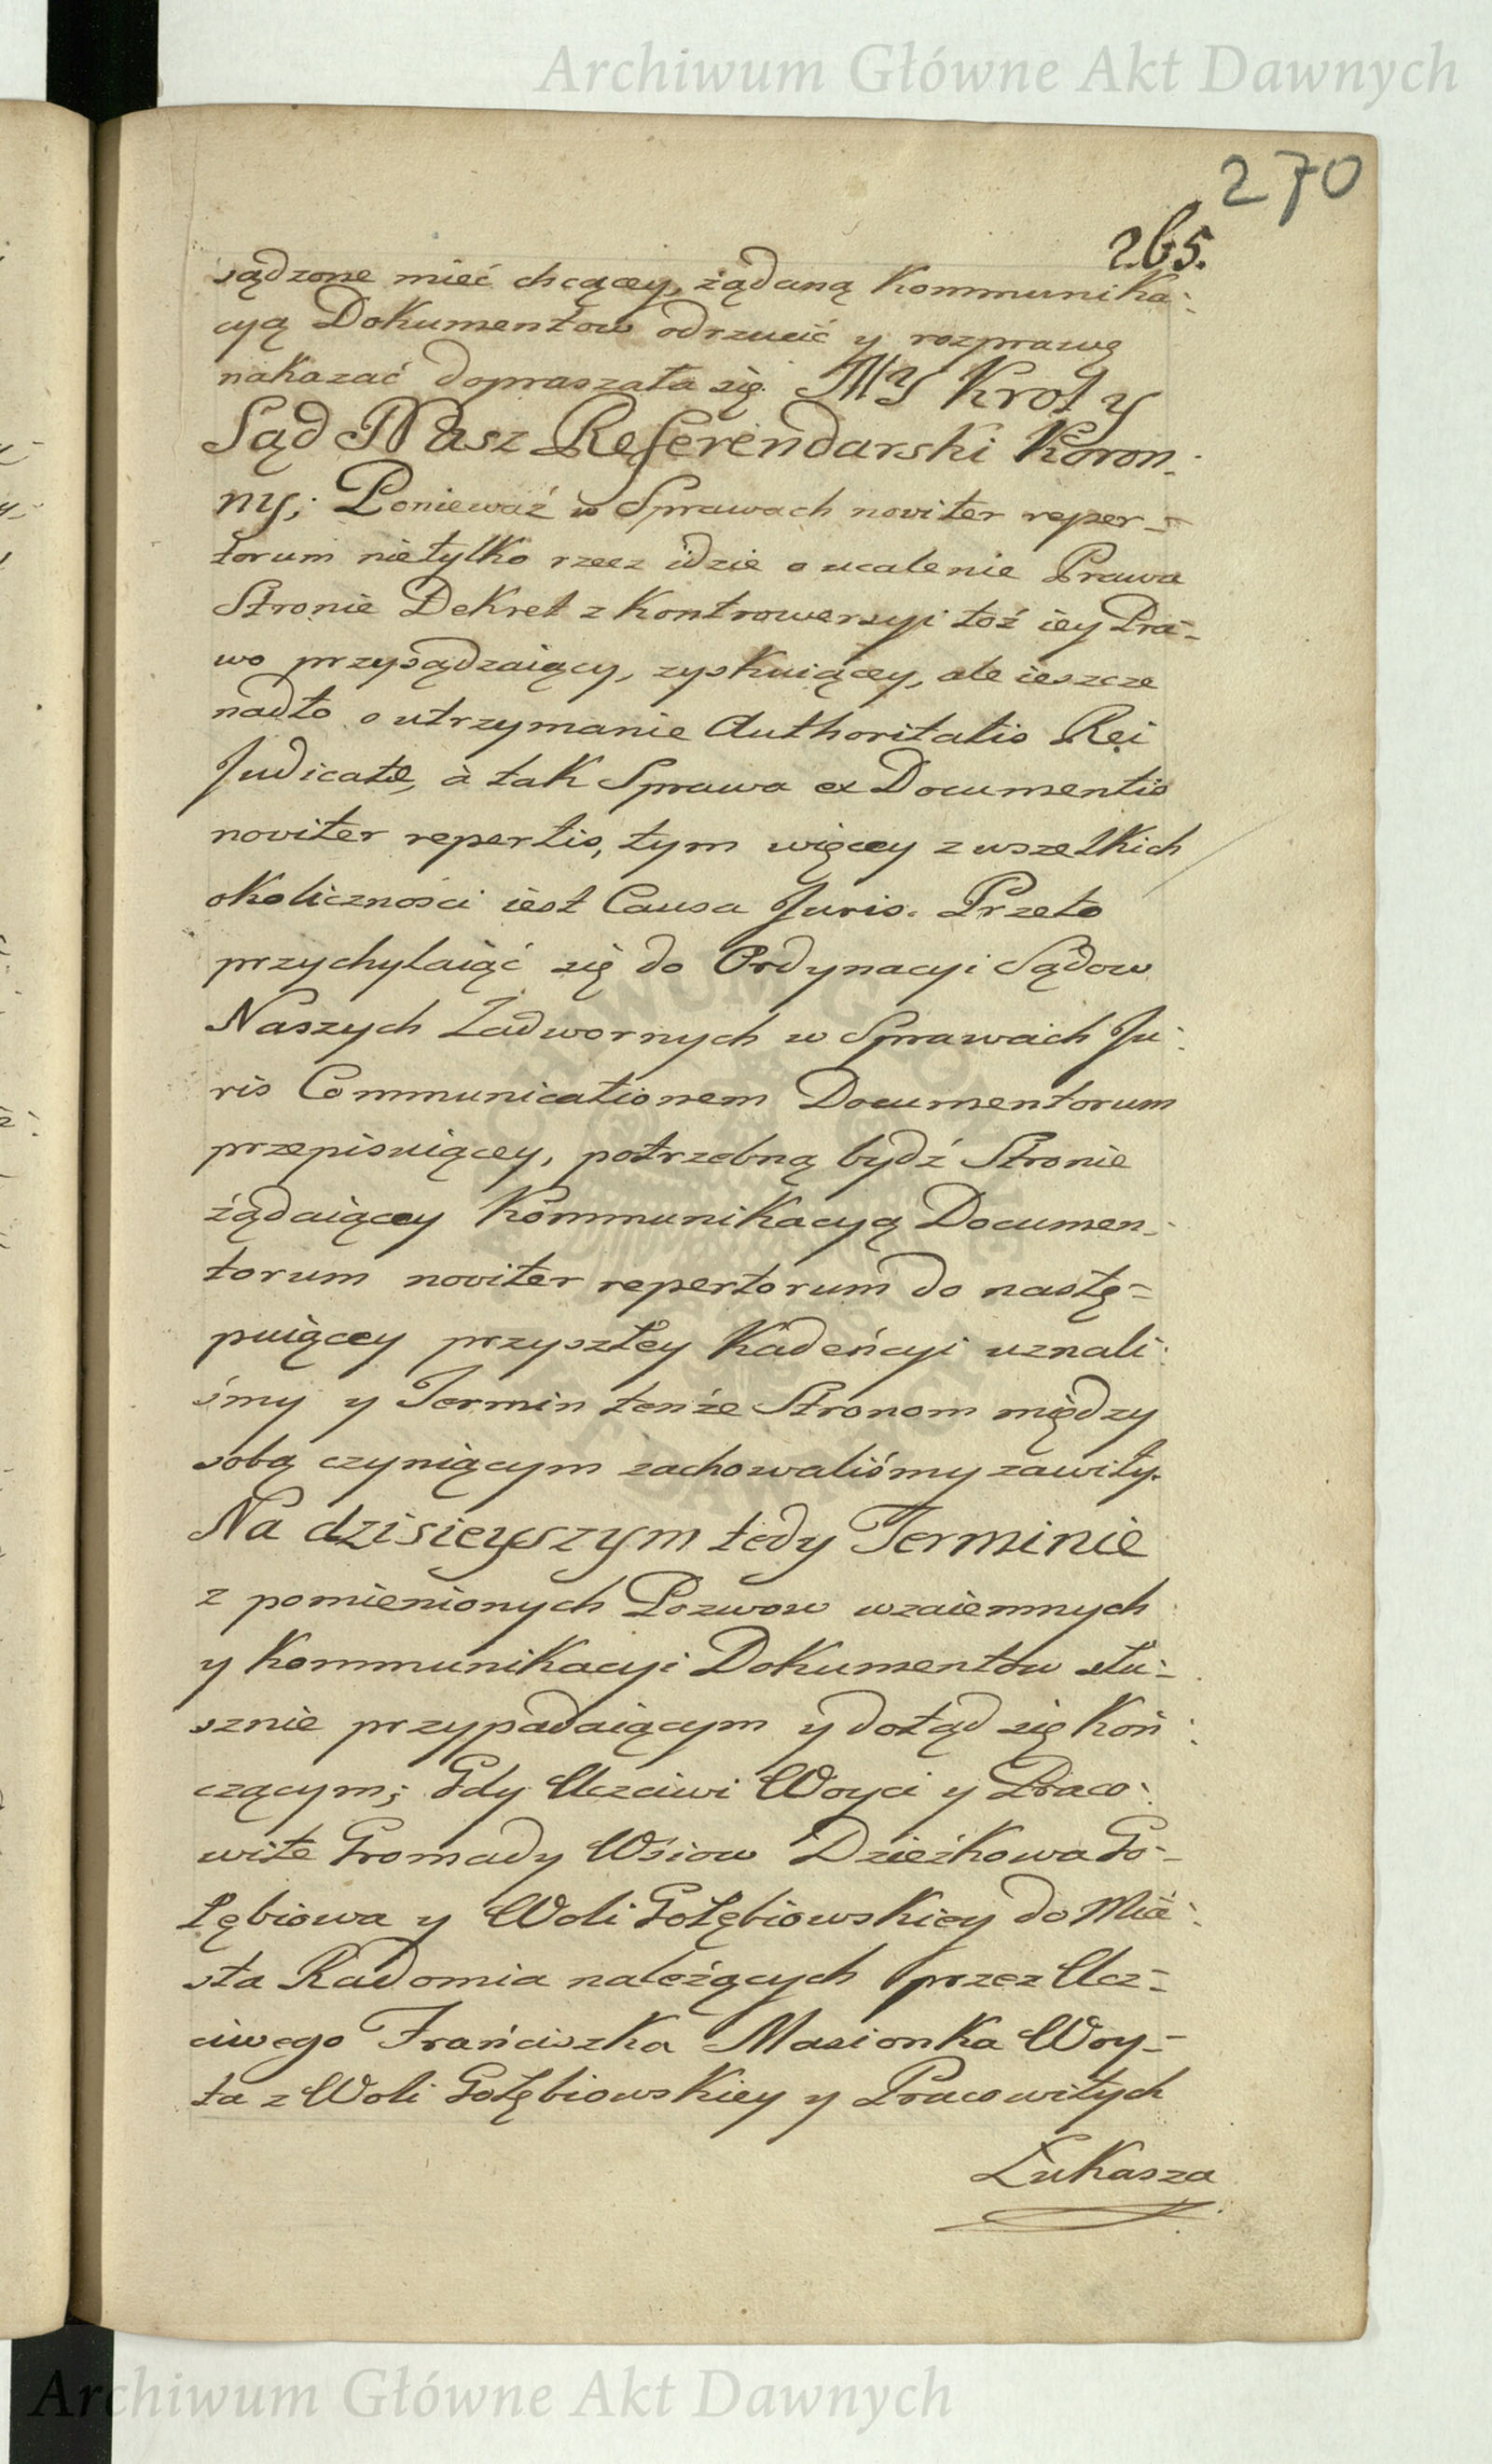 Archiwum Główne Akt Dawnych
270
265.
sądzone mieć chcącey, żądaną Kommunika:
cyą Dokumentow odrzucić y rozprawę
nakazać dopraszała się. MY Krol y
Sąd Nasz Referendarski Koron:
ny; Ponieważ w Sprawach noviter reper=
torum nietylko rzecz idzie o ucalenie Prawa
Stronie Dekret z Kontrowersyi toż iey Pra=
wo przysądzaiący, zyskuiącey, ale ieszcze
nadto o utrzymanie Authoritatis Rei
Judicatæ, à tak Sprawa ex Documentis
noviter repertis, tym więcey z wszelkich
okoliczności iest Causa Juris. Przeto
przychylaiąć się do Ordynacyi Sądow
Naszych Zadwornych w Sprawach Ju:
ris Communicationem Documentorum
przepisuiącey, potrzebną bydź Stronie
żądaiącey Kommunikacyą Documen:
torum noviter repertorum do nastę=
puiącey przyszłey Kadeńcyi uznali:
śmy y Termin tenże Stronom między
sobą czyniącym zachowaliśmy zawity.
Na dzisieyszym tedy Terminie
z pomienionych Pozwow wzaiemnych
y Kommunikacyi Dokumentow słu=
sznie przypadaiącym y dotąd się Koń:
czącym; Gdy Uczciwi Woyci y Praco:
wite Gromady Wsiow Dzieżkowa Go=
łębiowa y Woli Gołębiowskiey do Mia:
sta Radomia należących przez Ucz=
ciwego Frańciszka Masionka Woy=
ta z Woli Gołębiowskiey y Pracowitych
Łukasza
Archiwum Główne Akt Dawnych